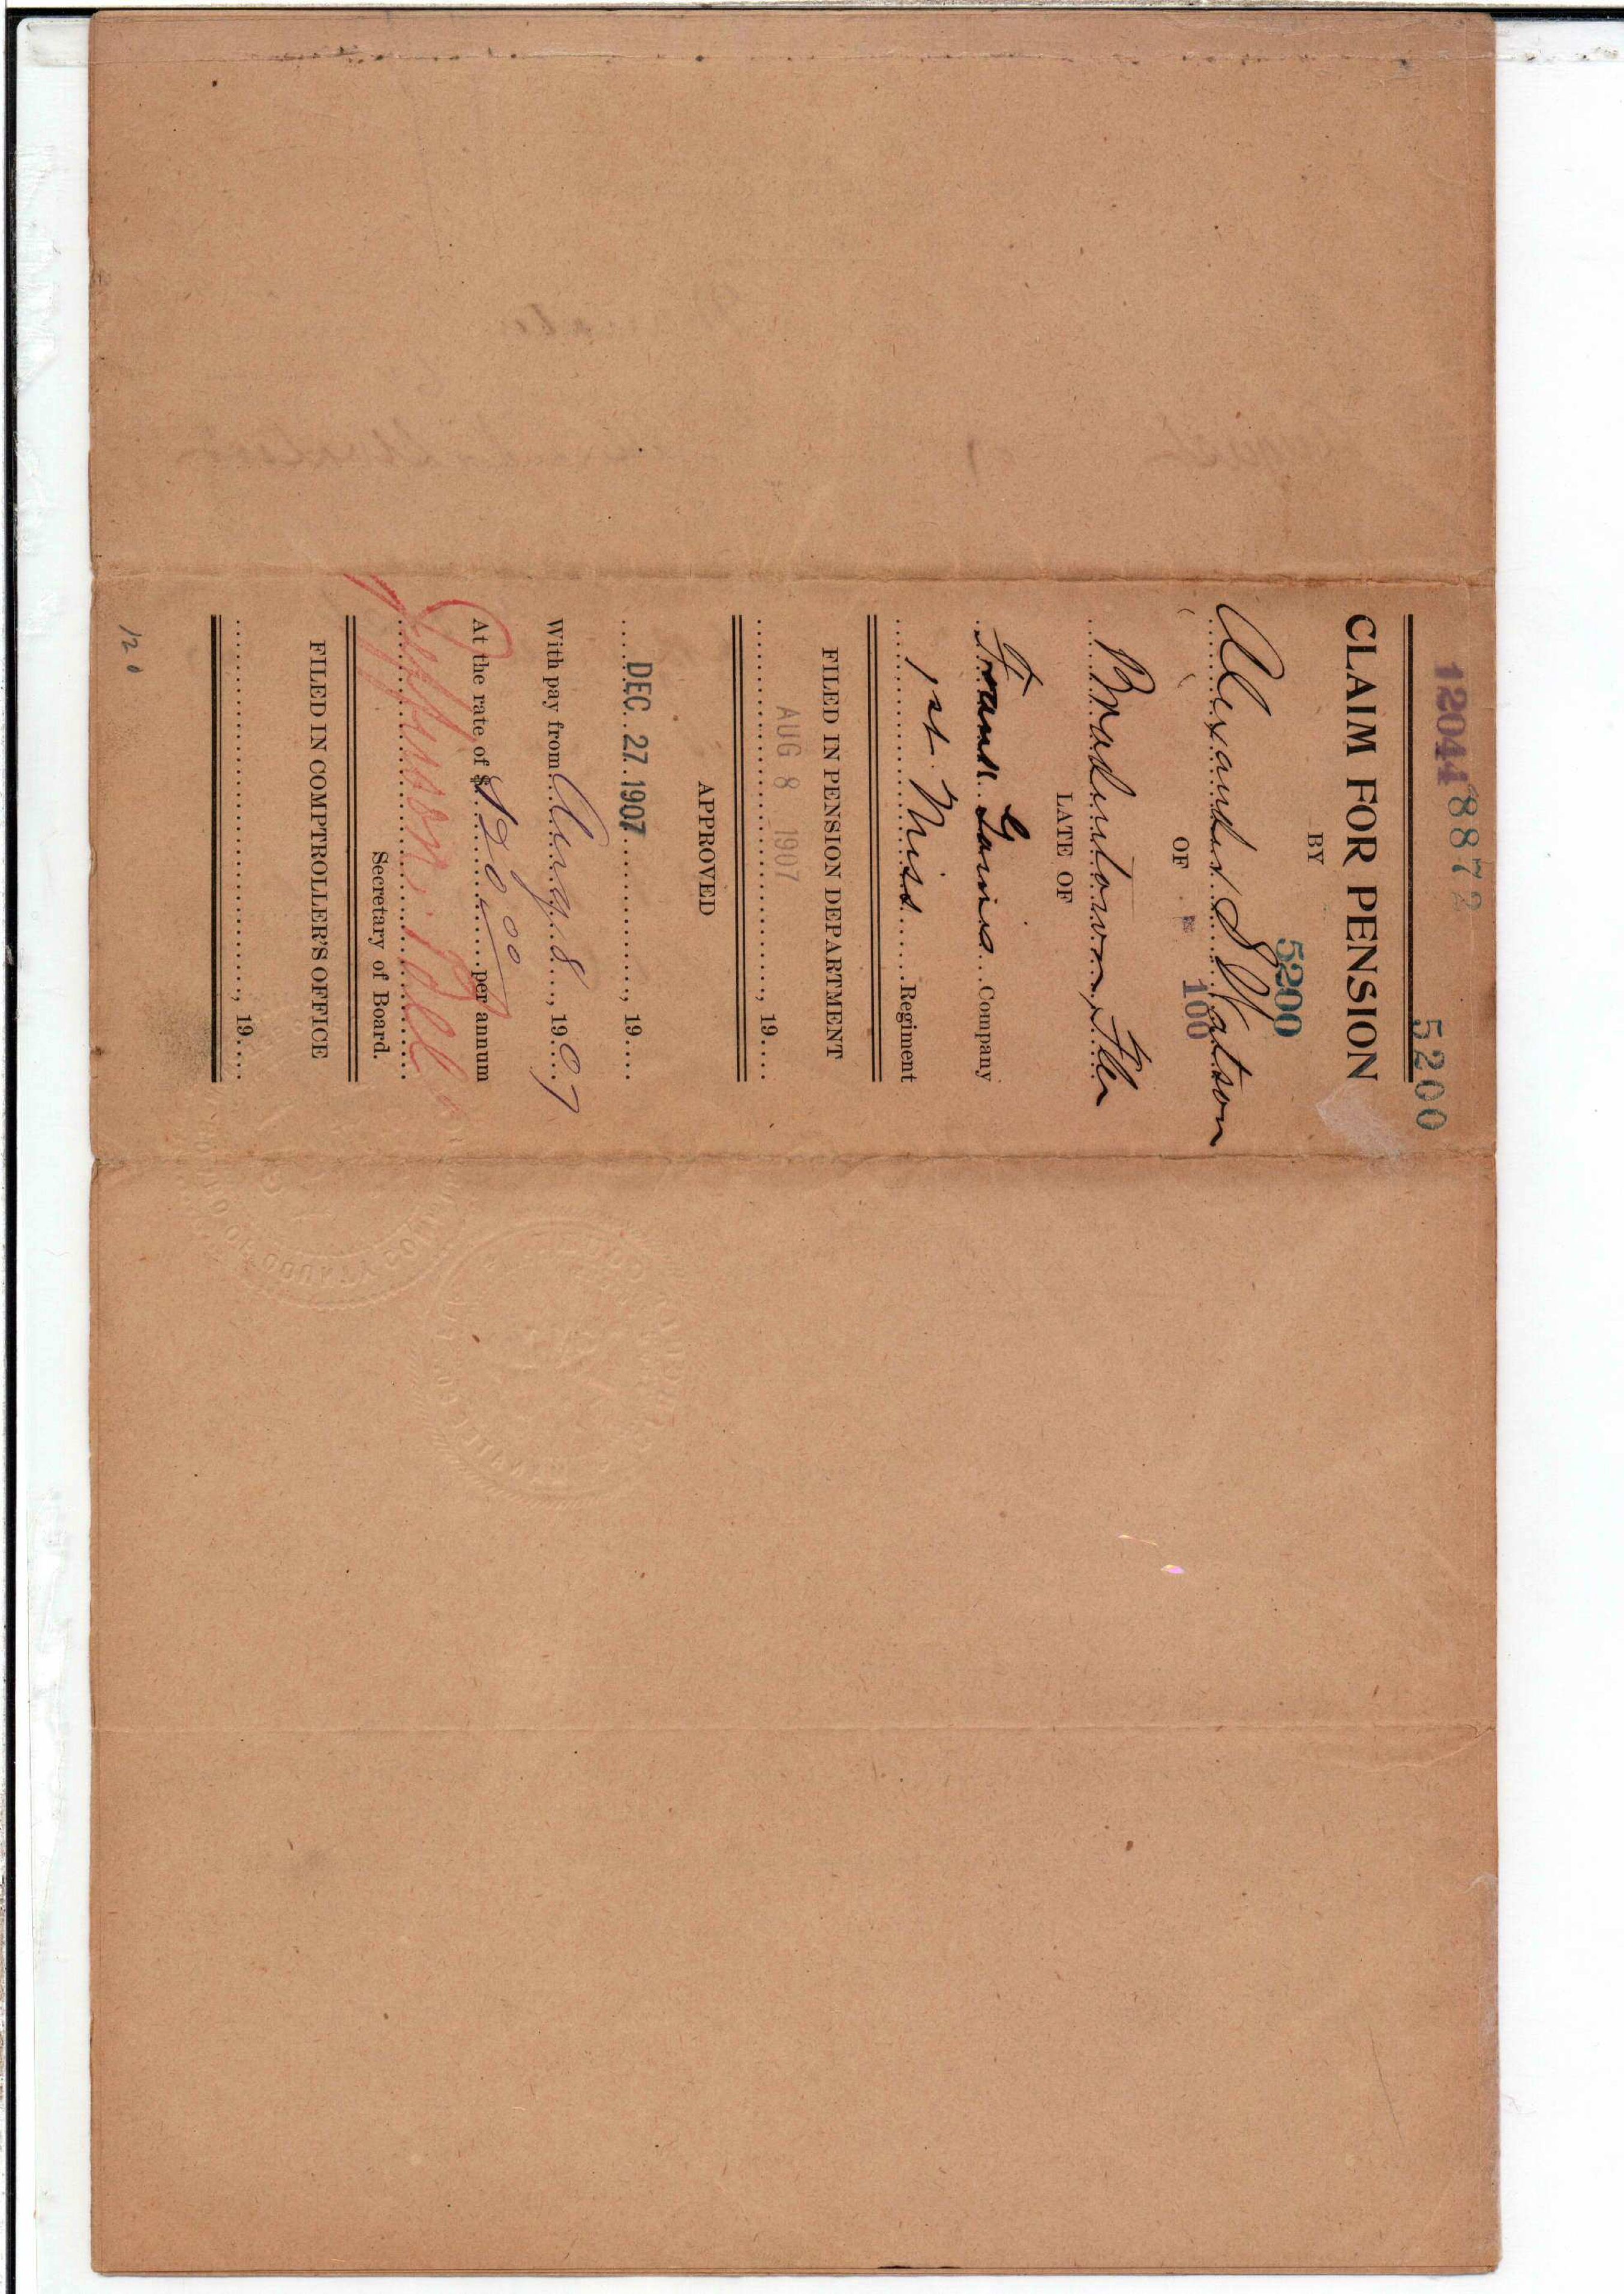 12044 8872
5200
CLAIM FOR PENSION
BY
5200
Alexander S Watson
OF
100
Bradentown, Fla
LATE OF
F and G Company
1st Miss Regiment
FILED IN PENSION DEPARTMENT
AUG 8 1907, 19
APPROVED
DEC 27 1907, 19
With pay from Aug. 8, 1907
At the rate of $120.00 per annum
Jefferson. Bell
Secretary of Board.
FILED IN COMPTROLLER'S OFFICE
, 19
120